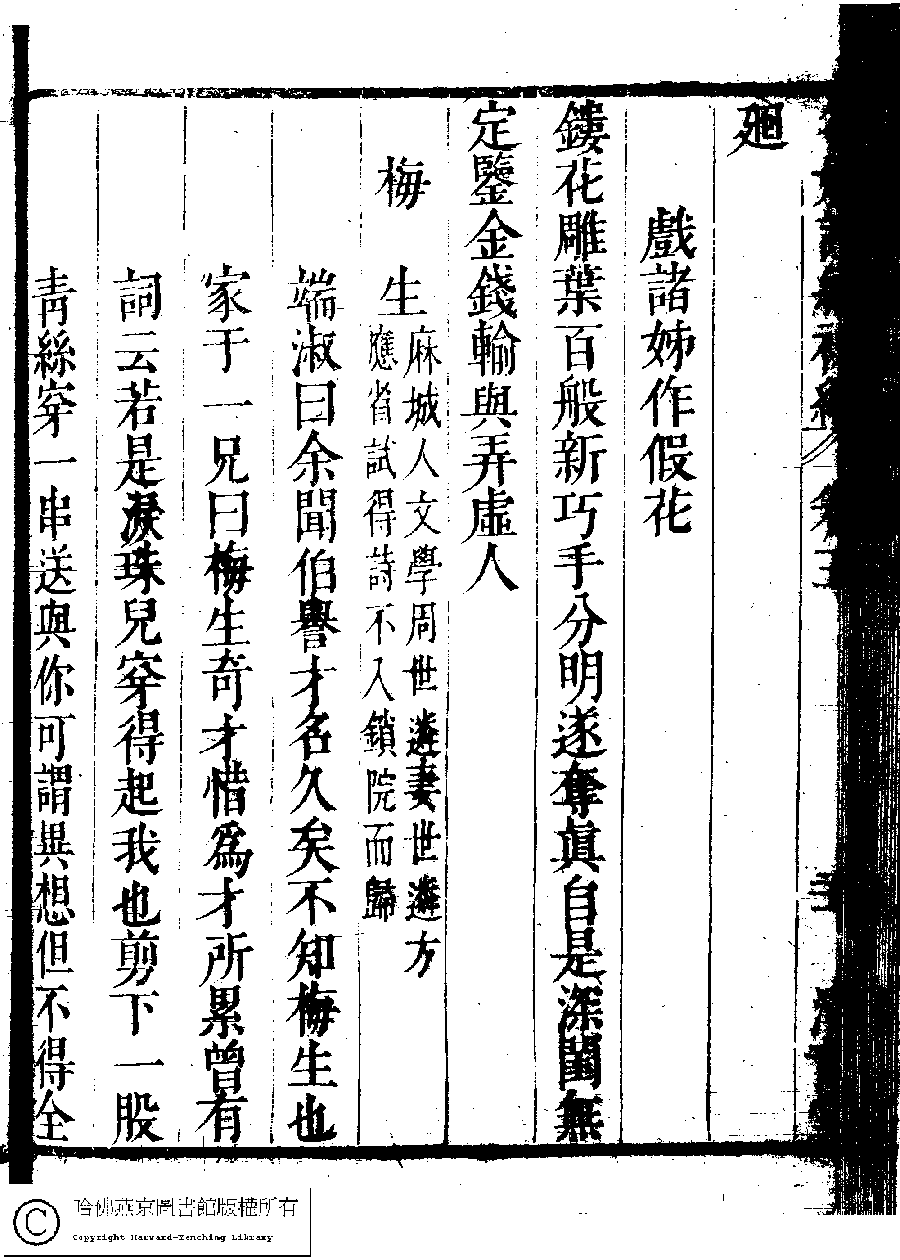 廻
戲諸姊作假花
鏤花雕葉百般新巧手分明遂奪眞自是深閨無
定鑒金錢輸與弄虛人
梅生
麻城人文學周世遴妻世遴方
應省試得詩不入鎖院而歸
端淑曰余聞伯譽才名久矣不知梅生也
家于一兄曰梅生奇才惜爲才所累曾有
詞云若是淚珠兒穿得起我也剪下一股
靑絲穿一串送與你可謂異想但不得全
哈佛燕京圖書館版權所有
Copyright Harvard-Yenching Library